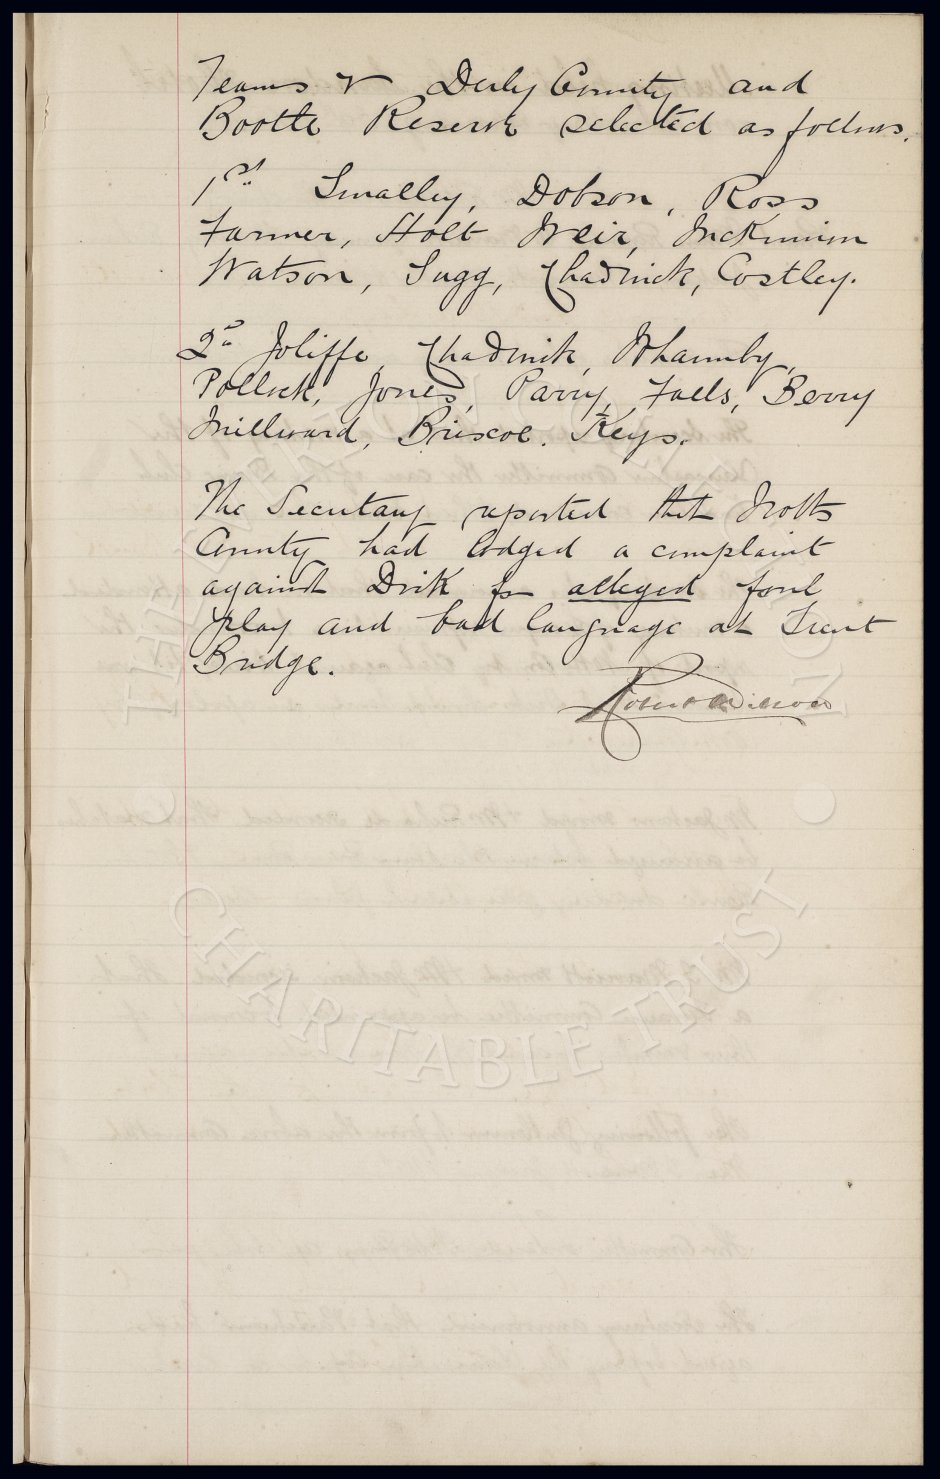 Teams v Derby County and
Bootle Reserve selected as follows.
1st Smalley, Dobson, Ross
Farmer, Holt Weir, McKinnon
Watson, Sugg, Chadwick, Costley.
2nd Joliffe, Chadwick, Whannby,
Pollock, Jones, Parry, Falls, Berry
Millward, Briscoe. Keys.
The Secretary reported that Notts
County had lodged a complaint
against Dick for alleged foul
play and bad language at Trent
Bridge.
CHARITABLE TRUST